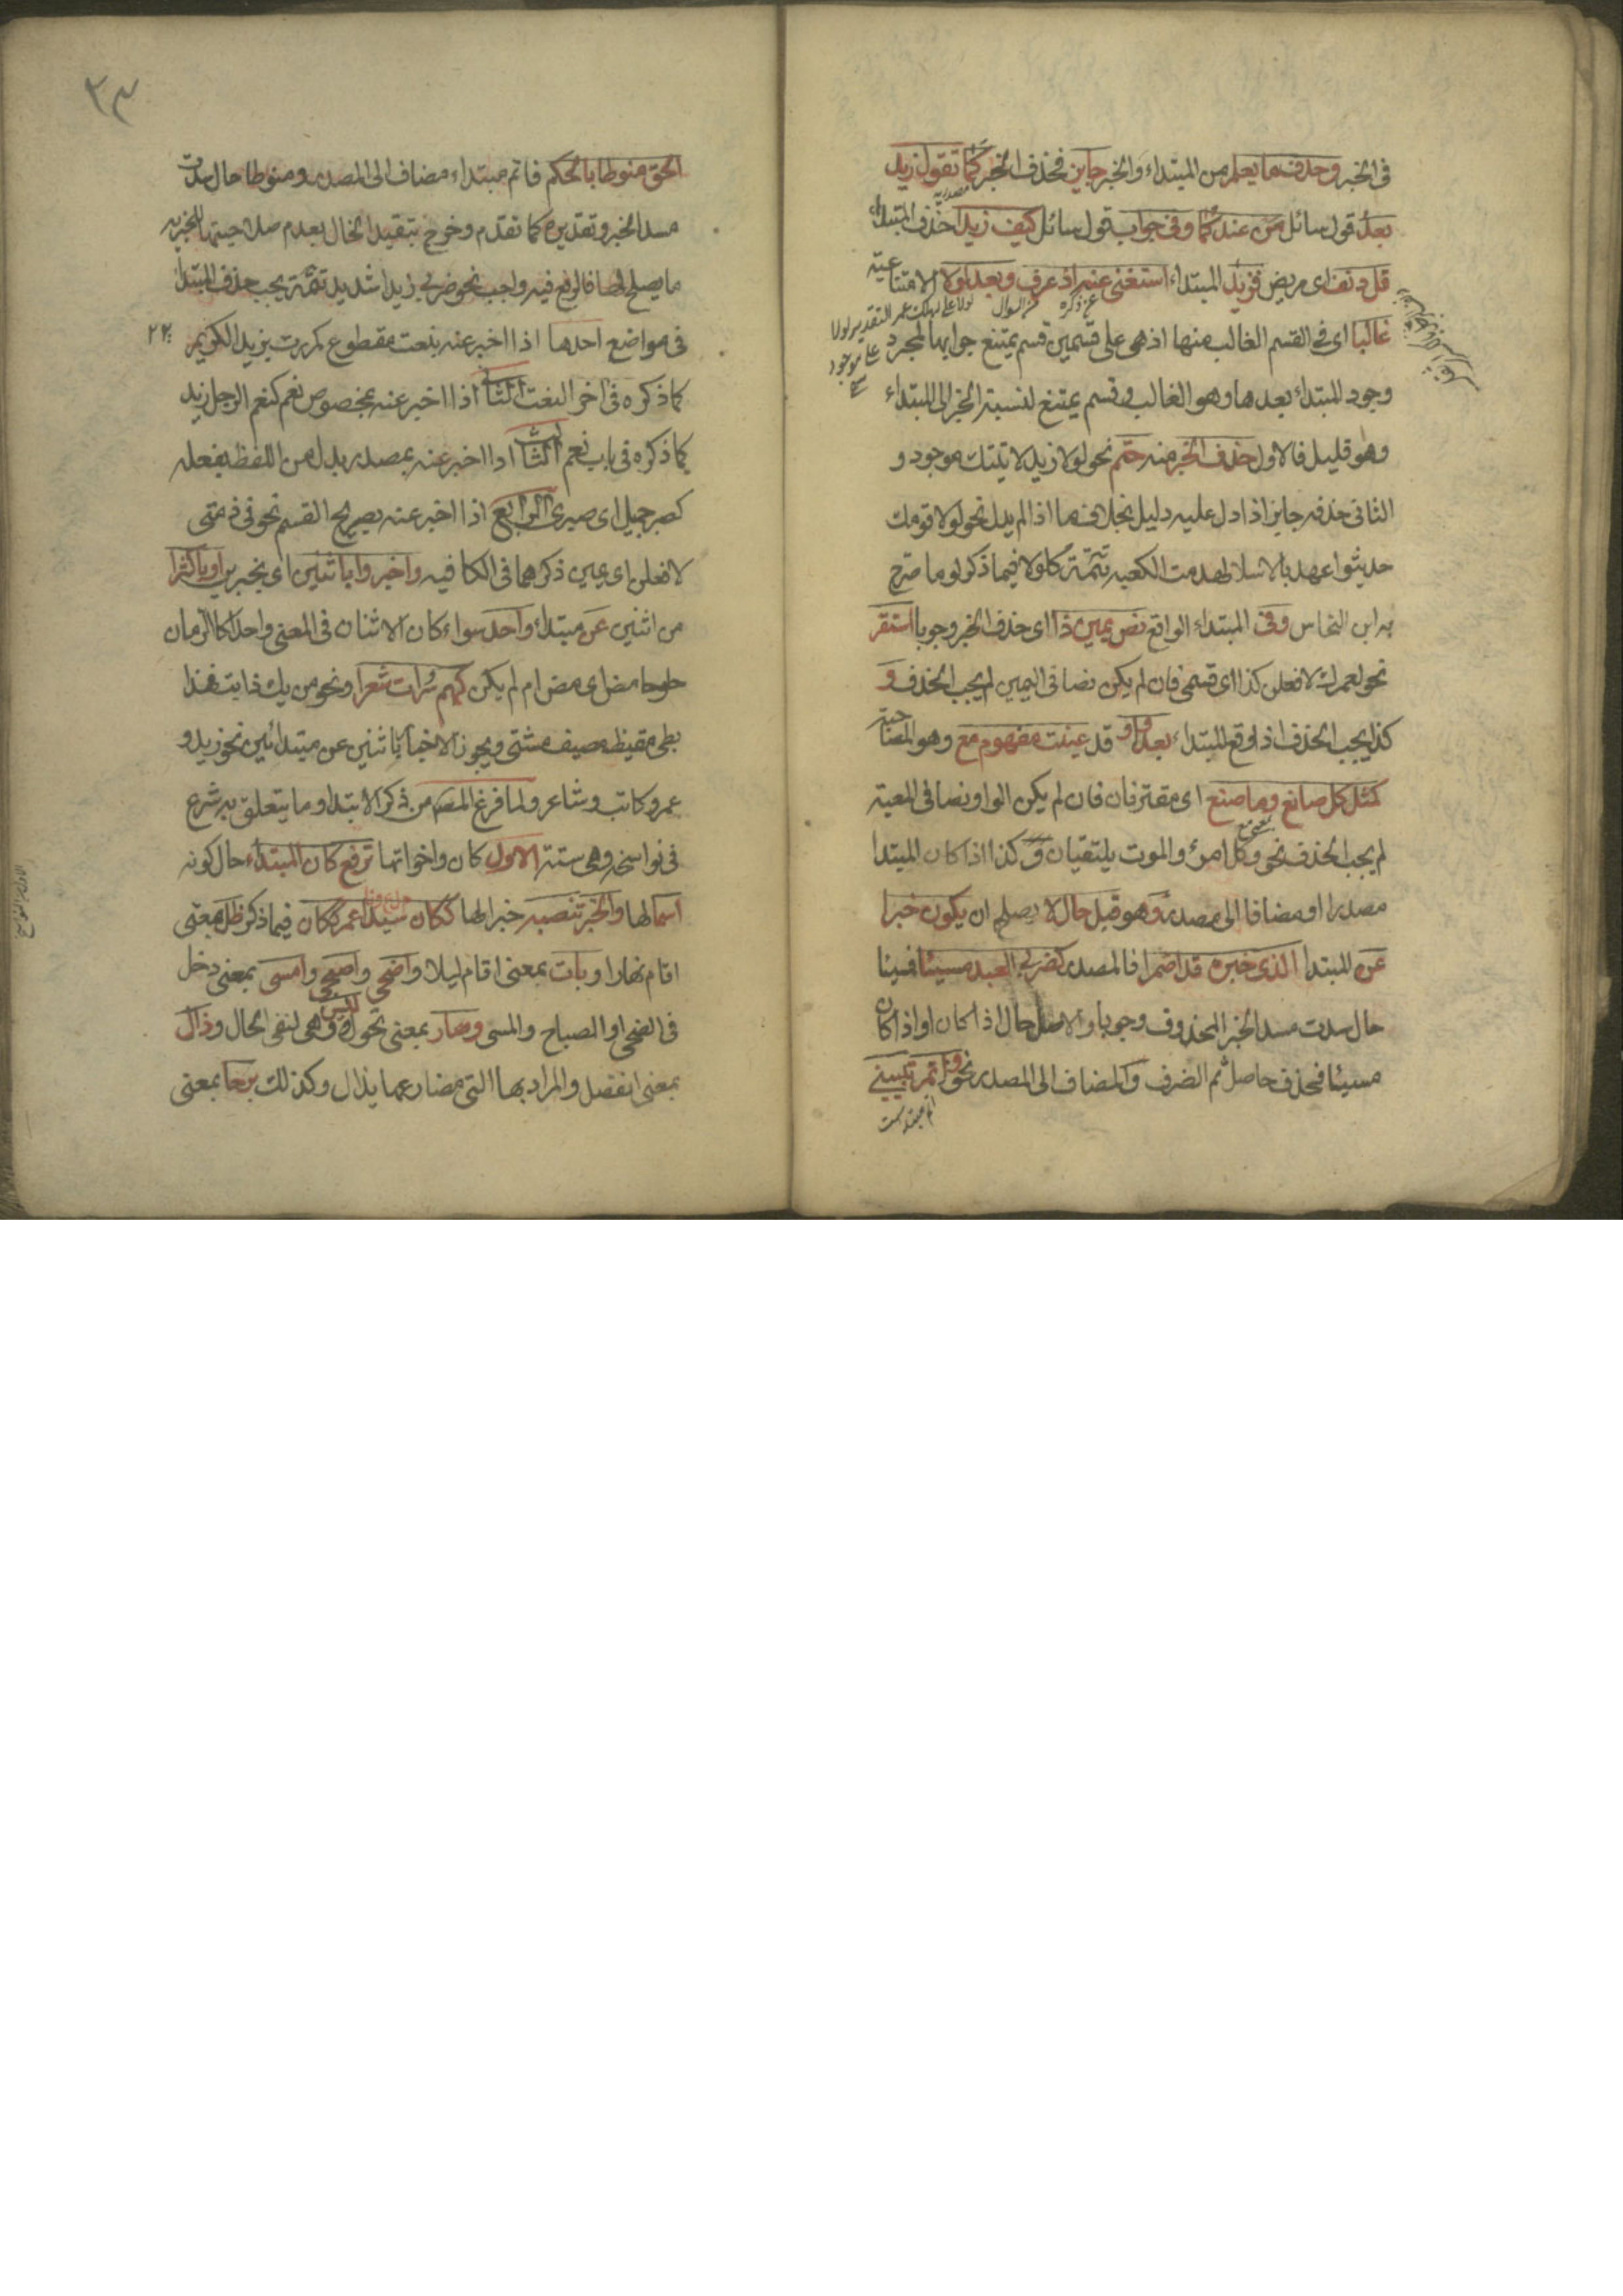 فى الخبر وحذف ما يعلم من المبتداء والخبر جايز فحذف الخبر كما تقول زيد
بعد قول سائل من عندكما وفى جواب قول سائل كيف زيد احذف المبتداء
قل دنف اى مريض فزيد المبتداء استغنى عنه اذ عرف وبعد لولا الامتناعية
غالبا اى فى القسم الغالب منها اذ هى على قسمين قسم يمتنع جوابها لمجرد
وجود المبتداء بعدها وهو الغالب وقسم يمتنع لنسبة الخبر الى المبتداء
وهو قليل فالاول حذف الخبر منه حتم نحو لولا زيد لاتيتك موجود و
الثانى حذفه جايز اذا دل عليه دليل بخلاف ما اذا لم يدل نحو لولا قومك
حديثوا عهد بالاسلام لهدمت الكعبه تتمة كلولا فيما ذكر لوما صرح
به ابن النحاس وفى المبتداء الواقع نص يمين ذا اى حذف الخبر وجوبا استقر
نحو لعمرك لافعلن كذا اى قسمى فان لم يكن نصا فى اليمين لم يجب الحذف و
كذا يجب الحذف اذا وقع المبتداء بعد واو قد عينت مفهوم مع وهو المصاحبة
كمثل كل صانع وما صنع اى مقترنان فان لم يكن الواو نصا فى المعية
لم يجب الحذف نحو وكل امرئ والموت يلتقيان و كذا اذا كان المبتدا
مصدرا او مضافا الى مصدر وهو قبل حال لا يصلح ان يكون خبرا
عن المبتدا الذى خبره قد اضمرا فالمصدر كضربى العبد مسيئا فمسيئا
حال سدت مسد الخبر المحذوف وجوبا والاصل حاصل اذا كان او اذ كان
مسيئا فحذف حاصل ثم الضرف والمضاف الى المصدر نحو واتم تبيينى
الحق منوطا بالحكم فاتم مبتداء مضاف الى المصدر ومنوطا حال سدت
مسد الخبر وتقديره كما تقدم وخرج بتقييد الحال بعدم صلاحيتها للخبريه
ما يصلح لها فالرفع فيه واجب نحو ضربى زيدا شديد تتمة يجب حذف المبتدأ
فى مواضع احدها اذا اخبر عنه بنعت مقطوع كمررت بزيد الكريم
كما ذكره فى اخر النعت الثانى اذا اخبر عنه بمخصوص نعم كنعم الرجل زيد
كما ذكره فى باب نعم الثالث اذا اخبر عنه بمصدر بدل من اللفظ بفعله
كصبر جميل اى صبرى الرابع اذا اخبر عنه بصريح القسم نحو فى ذمتى
لافعلن اى يمين ذكرهما فى الكافيه واخبروا باثنين اى بخبرين او باكثرا
من اثنين عن مبتداء واحد سواء كان الاثنان فى المعنى واحدا كالرمان
حلو حامض اى مز ام لم يكن كهم سراة شعرا ونحو من يك ذا بت فهذا
بتى مقيظ مصيف مشتى ويجوز الاخبار باثنين عن مبتدائين نحو زيد و
عمرو كاتب وشاعر ولما فرغ المصـ من ذكر الابتدا وما يتعلق به شرع
فى نواسخه وهى ستة الاول كان واخواتها ترفع كان المبتداء حال كونه
اسما لها والخبر تنصبه خبرا لها ككان سيدا عمر ككان فيما ذكر ظل بمعنى
اقام نهارا وبات بمعنى اقام ليلا واضحى واصبح وامسى بمعنى دخل
فى الضحى او الصباح والمسى وصار بمعنى تحول وليس وهى لنفى الحال وزال
بمعنى انفصل والمراد بها التى مضارعها يزال وكذلك برحا بمعنى